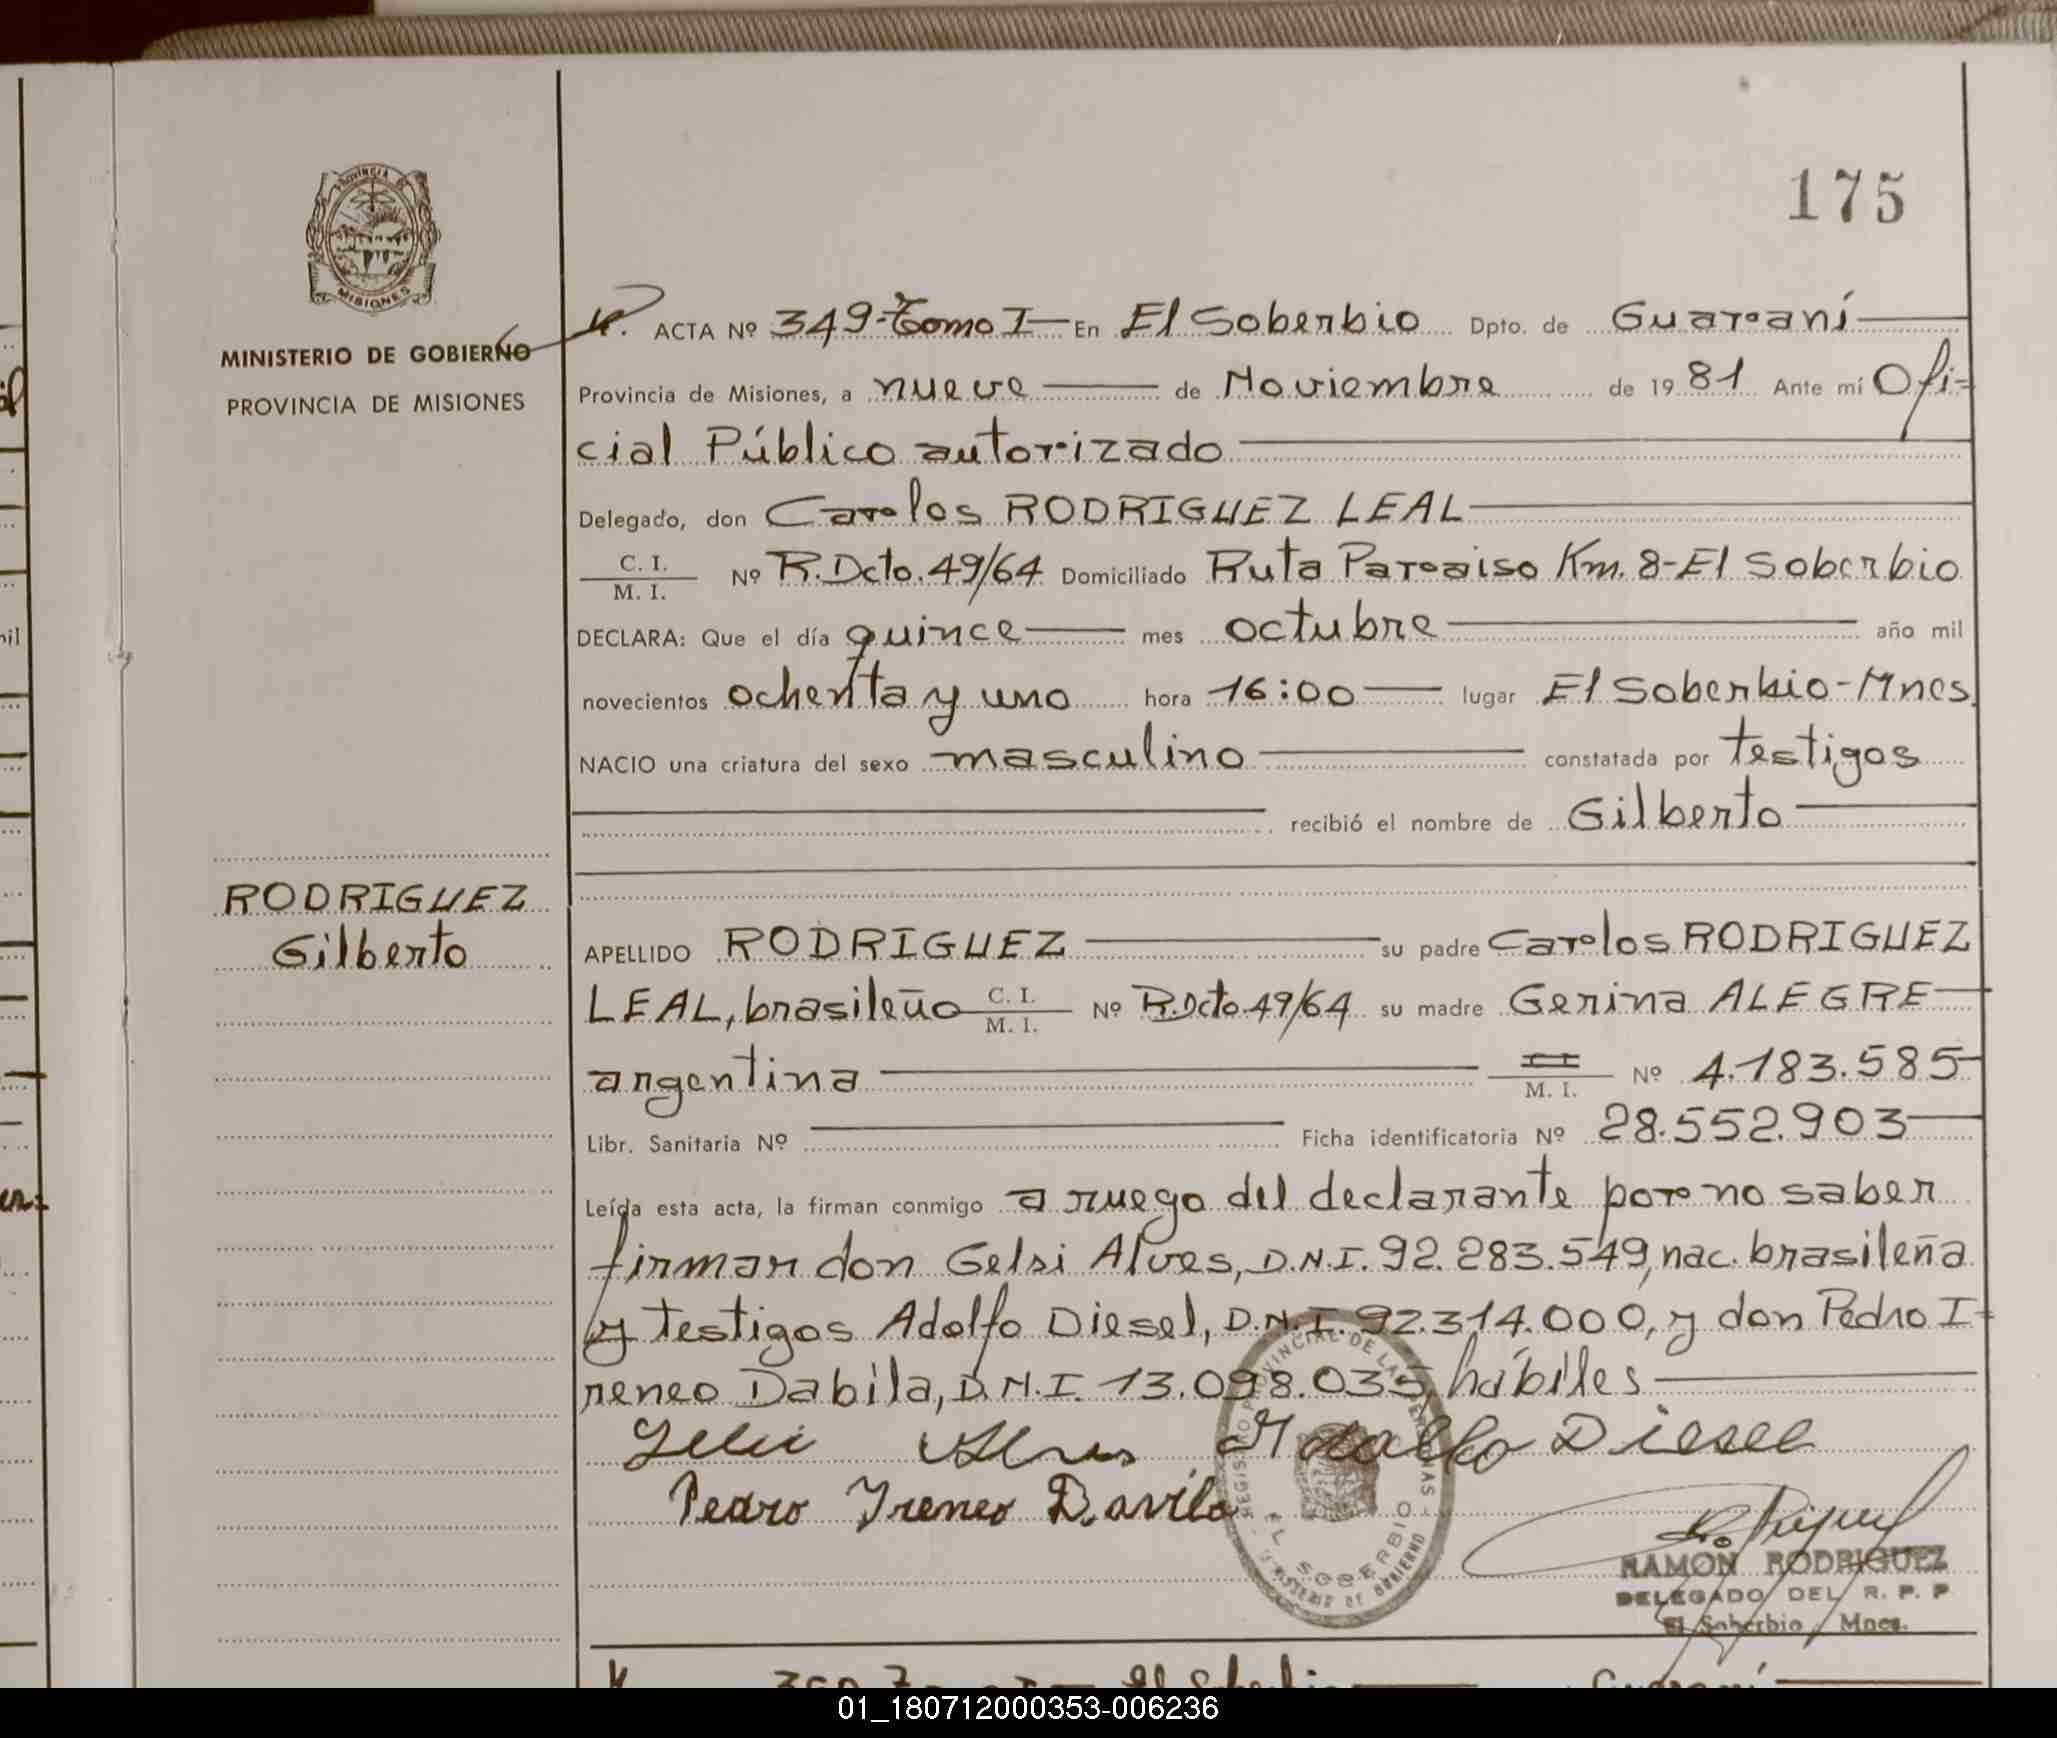 175
PROVINCIA DE
MISIONES
MINISTERIO DE GOBIERNO
PROVINCIA DE MISIONES
RODRIGUEZ
Gilberto
ACTA Nº 349-Tomo I En El Soberbio Dpto. de Guaraní
Provincia de Misiones, a nueve de Noviembre de 1981 Ante mí Ofi-
cial Público autorizado
Delegado, don Carlos RODRIGUEZ LEAL
C. I. M. I. Nº R.Dcto.49/64 Domiciliado Ruta Paraiso Km. 8-El Soberbio
DECLARA: Que el día quince mes octubre año mil
novecientos ochenta y uno hora 16:00 lugar El Soberbio-Mnes.
NACIO una criatura del sexo masculino constatada por testigos
recibió el nombre de Gilberto
APELLIDO RODRIGUEZ su padre Carlos RODRIGUEZ
LEAL, brasileño C. I. M. I. Nº R.Dcto.49/64 su madre Gerina ALEGRE
argentina M. I. Nº 4.183.585
Libr. Sanitaria Nº Ficha identificatoria Nº 28.552.903
Leída esta acta, la firman conmigo a ruego del declarante por no saber
firmar don Gelsi Alves, D.N.I. 92.283.549, nac. brasileña
y testigos Adolfo Diesel, D.N.I. 92.314.000, y don Pedro I-
reneo Dabila, D.N.I. 13.098.035, hábiles
Alves Adolfo Diesel
Pedro Ireneo Davila
REGISTRO PROVINCIAL DE LAS PERSONAS
EL SOBERBIO
MINISTERIO DE GOBIERNO
RAMON RODRIGUEZ
DELEGADO DEL R. P. P
El Soberbio Mnes.
01_180712000353-006236